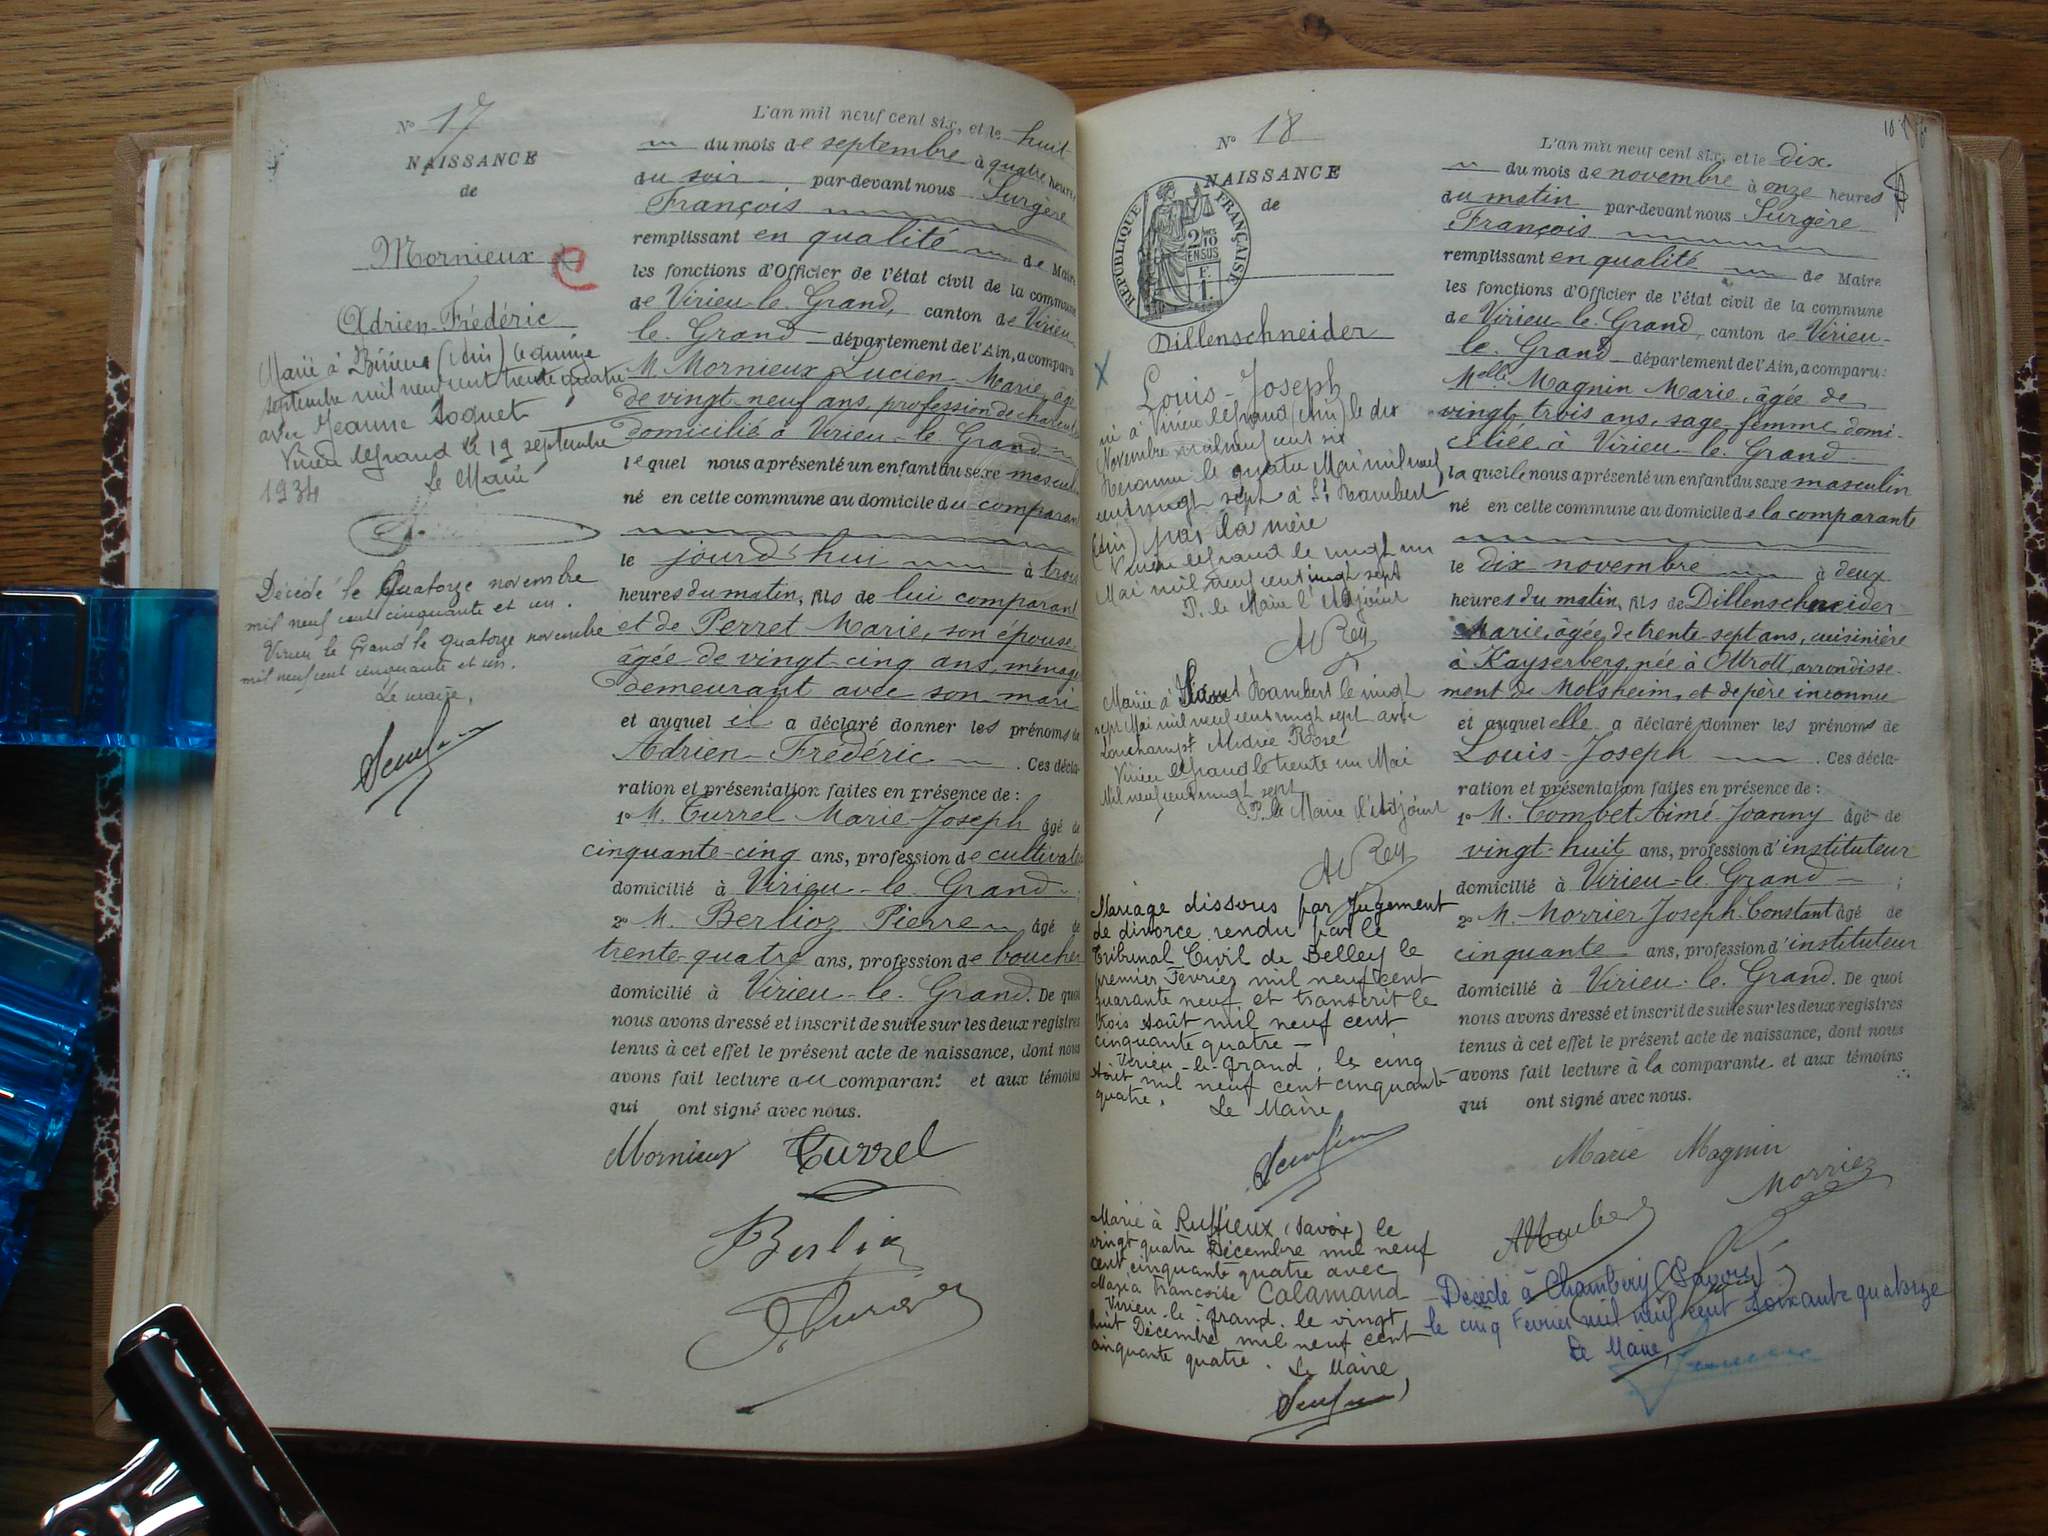 N° 17
NAISSANCE
de
Mornieux
Adrien-Frédéric
Marié à (Ain) le quinze
septembre mil neuf cent trente quatre
avec Jeanne
Virieu le grand le 19 septembre
1934 Le Maire
Décédé le Quatorze novembre
mil neuf cent cinquante et un.
Virieu le Grand le quatorze novembre
mil neuf cent cinquante et un.
Le maire,
L'an mil neuf cent six, et le huit
du mois de septembre à quatre heures
du soir par-devant nous Surgère
François
remplissant en qualité de Maire
les fonctions d'Officier de l'état civil de la commune
de Virieu-le-Grand, canton de Virieu-
le-Grand département de l'Ain, a comparu
M. Mornieux Lucien-Marie, âgé
de vingt-neuf ans, profession de
domicilié à Virieu-le-Grand
lequel nous a présenté un enfant du sexe masculin
né en cette commune au domicile du comparant
le jourd'hui à trois
heures du matin, fils de lui comparant
et de Perret Marie, son épouse,
âgée de vingt-cinq ans, ménagère
demeurant avec son mari
et auquel il a déclaré donner les prénoms de
Adrien-Frédéric . Ces décla-
ration et présentation faites en présence de :
1° M. Turrel Marie-Joseph âgé de
cinquante-cinq ans, profession de cultivateur
domicilié à Virieu-le-Grand ;
2° M. Berlioz Pierre âgé de
trente-quatre ans, profession de boucher
domicilié à Virieu-le-Grand. De quoi
nous avons dressé et inscrit de suite sur les deux registres
tenus à cet effet le présent acte de naissance, dont nous
avons fait lecture au comparant et aux témoins
qui ont signé avec nous.
Mornieux Turrel
Berlioz
N° 18
NAISSANCE
de
RÉPUBLIQUE FRANÇAISE
2/10
EN SUS
F.
1.
Dillenschneider
Louis-Joseph
né à Virieu le grand (Ain) le dix
Novembre mil neuf cent six
Reconnu le quatre Mai mil neuf
cent vingt sept à St Rambert
(Ain) par la mère
Virieu le grand le vingt un
Mai mil neuf cent vingt sept
P. le Maire l'Adjoint
Rey
Marié à Saint Rambert le vingt
sept Mai mil neuf cent vingt sept avec
Rose
Virieu le grand le trente un Mai
Mil neuf cent vingt sept
P. le Maire l'Adjoint
Rey
Mariage dissous par Jugement
de divorce rendu par le
Tribunal Civil de Belley le
premier Fevrier mil neuf cent
quarante neuf et transcrit le
trois Août mil neuf cent
cinquante quatre —
Virieu-le-Grand, le cinq
Août mil neuf cent cinquante
quatre. Le Maire
Marié à Ruffieux (Savoie) le
vingt quatre Décembre mil neuf
cent cinquante quatre avec
Maria Francoise Calamand
Virieu-le-Grand, le vingt
huit Décembre mil neuf cent
cinquante quatre. Le Maire
L'an mil neuf cent six, et le dix
du mois de novembre à onze heures
du matin par-devant nous Surgère
François
remplissant en qualité de Maire
les fonctions d'Officier de l'état civil de la commune
de Virieu-le-Grand, canton de Virieu-
le-Grand département de l'Ain, a comparu :
Melle Magnin Marie, âgée de
vingt-trois ans, sage-femme, domi-
ciliée à Virieu-le-Grand
laquelle nous a présenté un enfant du sexe masculin
né en cette commune au domicile de la comparante
le dix novembre à deux
heures du matin, fils de Dillenschneider
Marie, âgée de trente-sept ans, cuisinière
à Kayserberg, née à Ottrott, arrondisse-
ment de Molsheim, et de père inconnu
et auquel elle a déclaré donner les prénoms de
Louis-Joseph . Ces décla-
ration et présentation faites en présence de :
1° M. Combet Aimé Joanny âgé de
vingt-huit ans, profession d'instituteur
domicilié à Virieu-le-Grand ;
2° M. Morrier Joseph Constant âgé de
cinquante ans, profession d'instituteur
domicilié à Virieu-le-Grand. De quoi
nous avons dressé et inscrit de suite sur les deux registres
tenus à cet effet le présent acte de naissance, dont nous
avons fait lecture à la comparante et aux témoins
qui ont signé avec nous.
Marie Magnin
Morrier
Décédé à Chambéry (Savoie)
le cinq Fevrier mil neuf cent soixante quatorze
Le Maire,